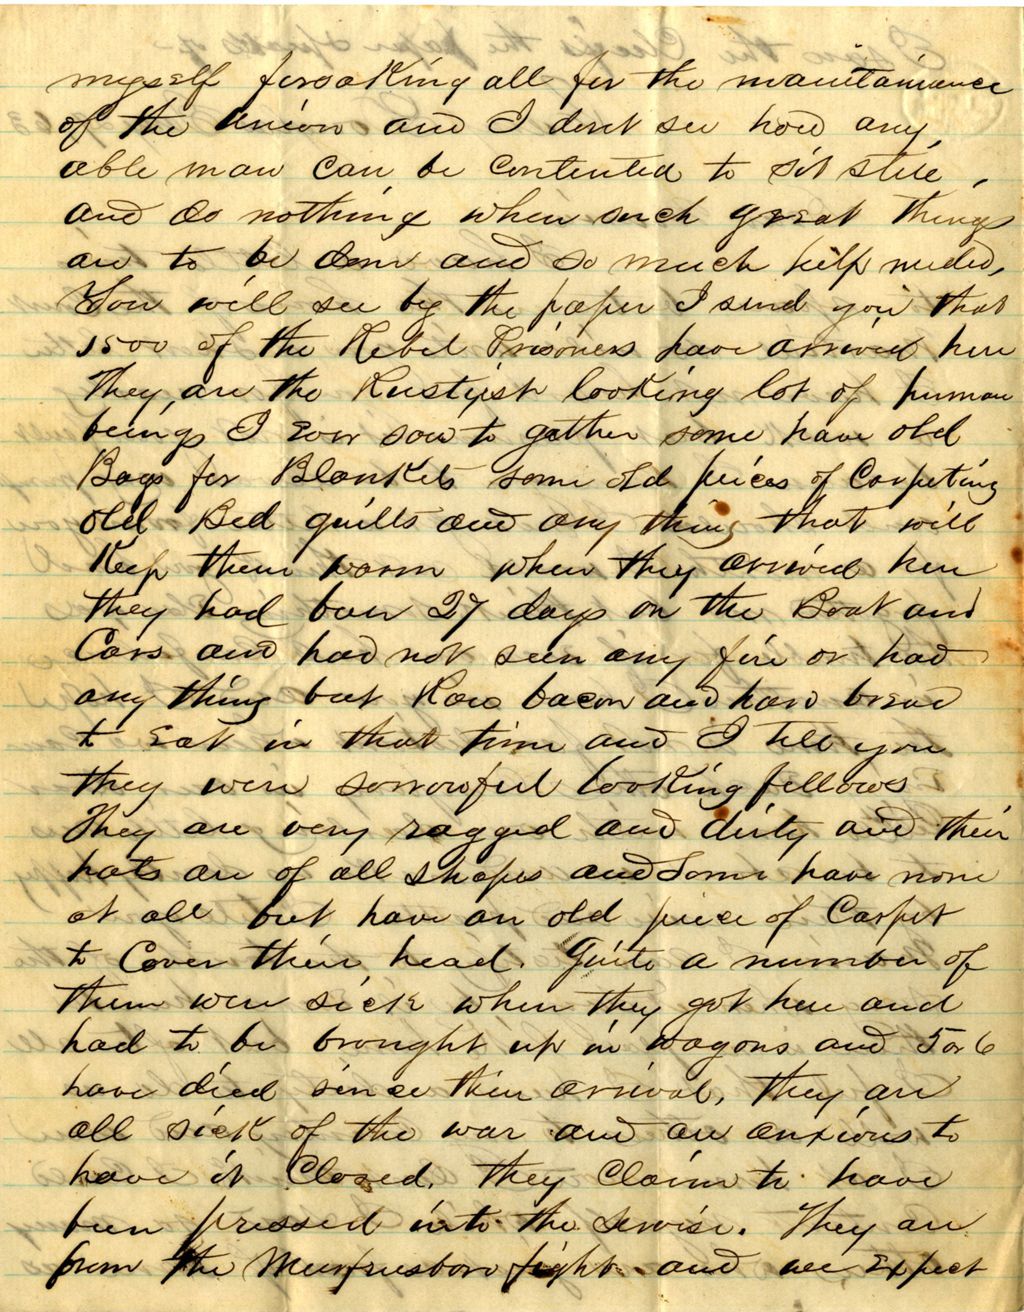 myself forsaking all for the maintainance
of the Union and I dont see how any
able man can be contented to sit still,
and do nothing when such great things
are to be don and so much help needed,
You will see by the paper I send you that
1500 of the Rebel Prisoners have arrived here
They are the Rustyist looking lot of human
beings I Ever saw to gether some have old
Bags for Blankets some old peices of Carpeting
old Bed quilts and any thing that will
Keep them warm when they arrived here
they had been 27 days on the Boat and
Cars and had not seen any fire or had
any thing but Raw bacon and hard bread
to Eat in that time and I tell you
they were sorrowful looking fellows
They are very ragged and dirty and their
hats are of all shapes and Some have none
at all but have an old piece of Carpet
to Cover their head. Quite a number of
them were sick when they got here and
had to be brought up in wagons and 5 or 6
have died since their arrival, they are
all sick of the war and are anxious to
have it Closed, they Claim to have
been pressed into the servise. They are
from the Murfreesboro fight and we Expect